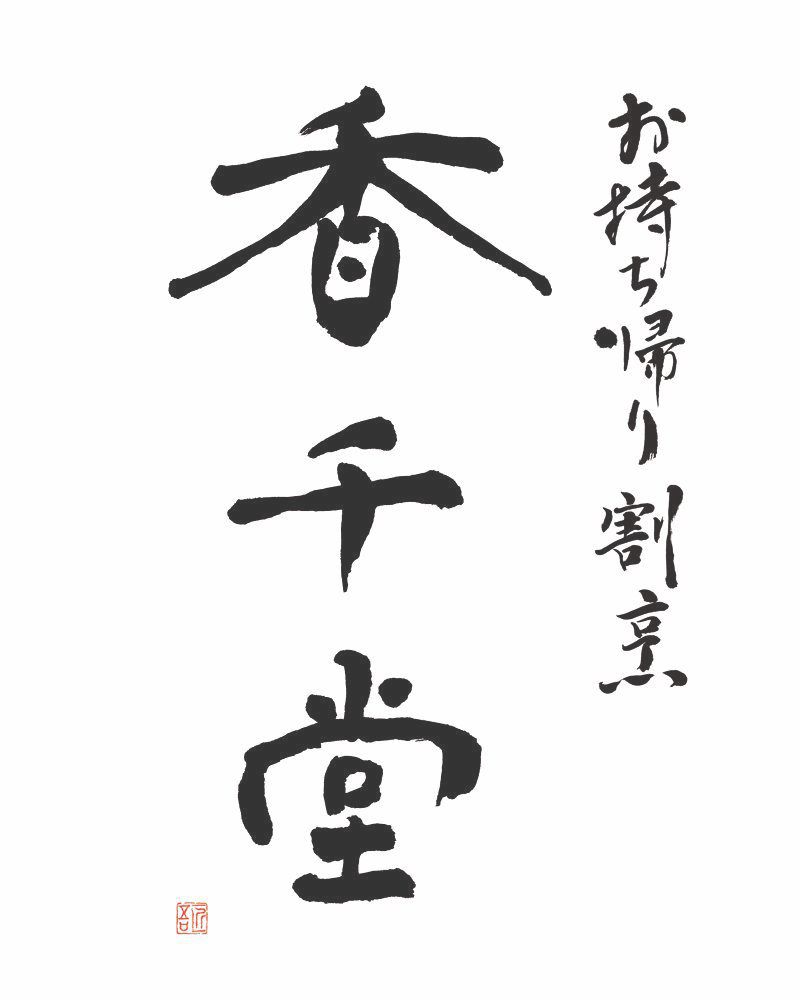 お持ち帰り 割烹
香千堂